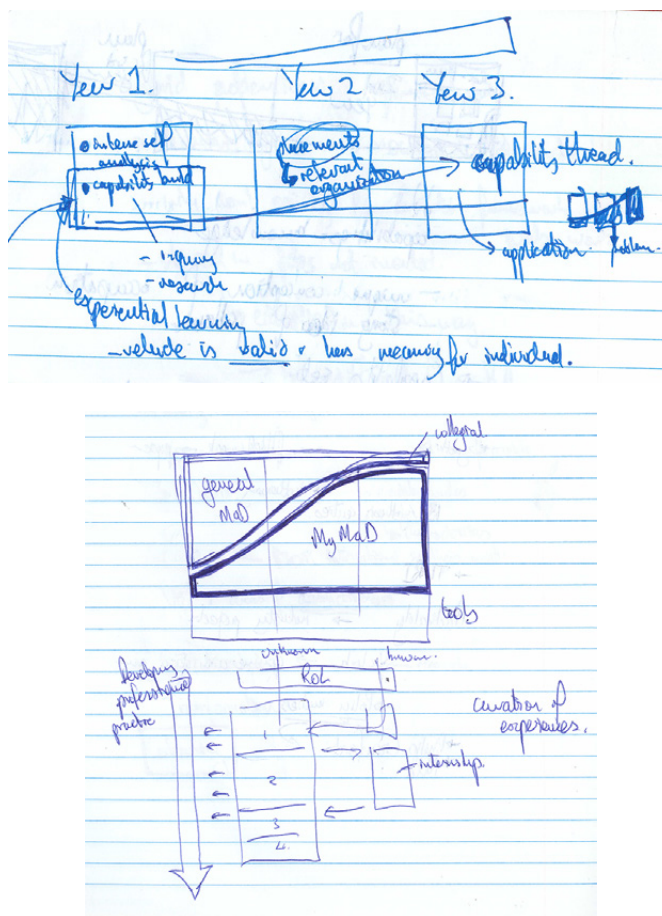 Year 1.
Year 2
Year 3.
intense self
analysis
capability build
placements
relevant
organisation
capability thread.
application.
problem.
- inquiry
- research
experiential learning
is valid & has meaning for individual.
collegial
general
MaD
My MaD
tools
unknown
known
RoL
developing
professional
practice
curation of
experiences.
1
internship.
2
3
4.